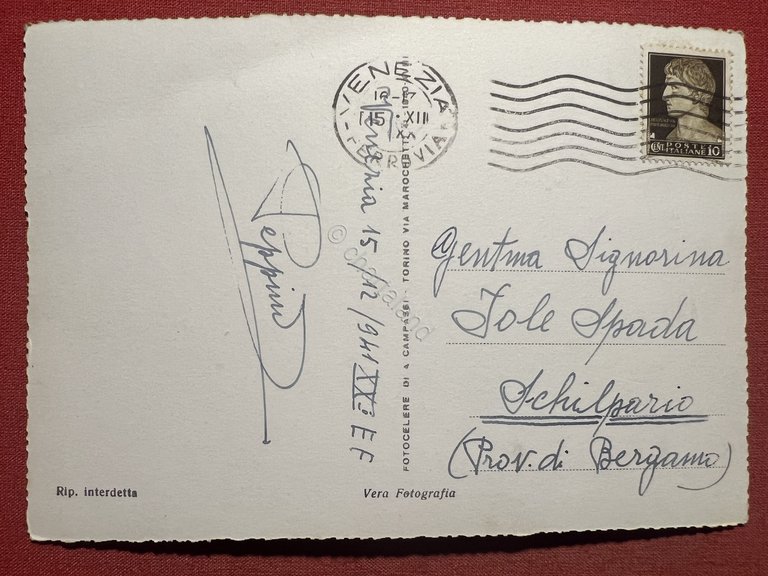 VENEZIA
15 · XII
FERROVIA
POSTE
ITALIANE
CENT 10
Peppino
Venezia 15/12/941 XX° E F
FOTOCELERE DI A CAMPASSI - TORINO VIA MAROCHETTI
Gentma Signorina
Jole Spada
Schilpario
(Prov. di Bergamo)
Rip. interdetta
Vera Fotografia
© cartaland